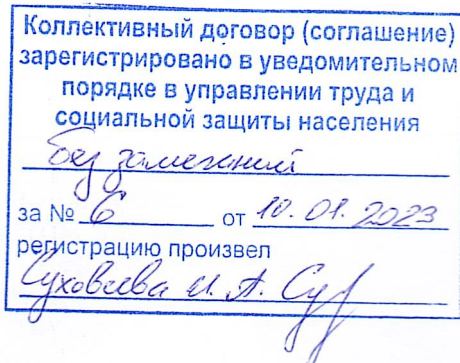 Коллективный договор (соглашение)
зарегистрировано в уведомительном
порядке в управлении труда и
социальной защиты населения
без замечаний
за № 6 от 10.01.2023
регистрацию произвел
И. А.